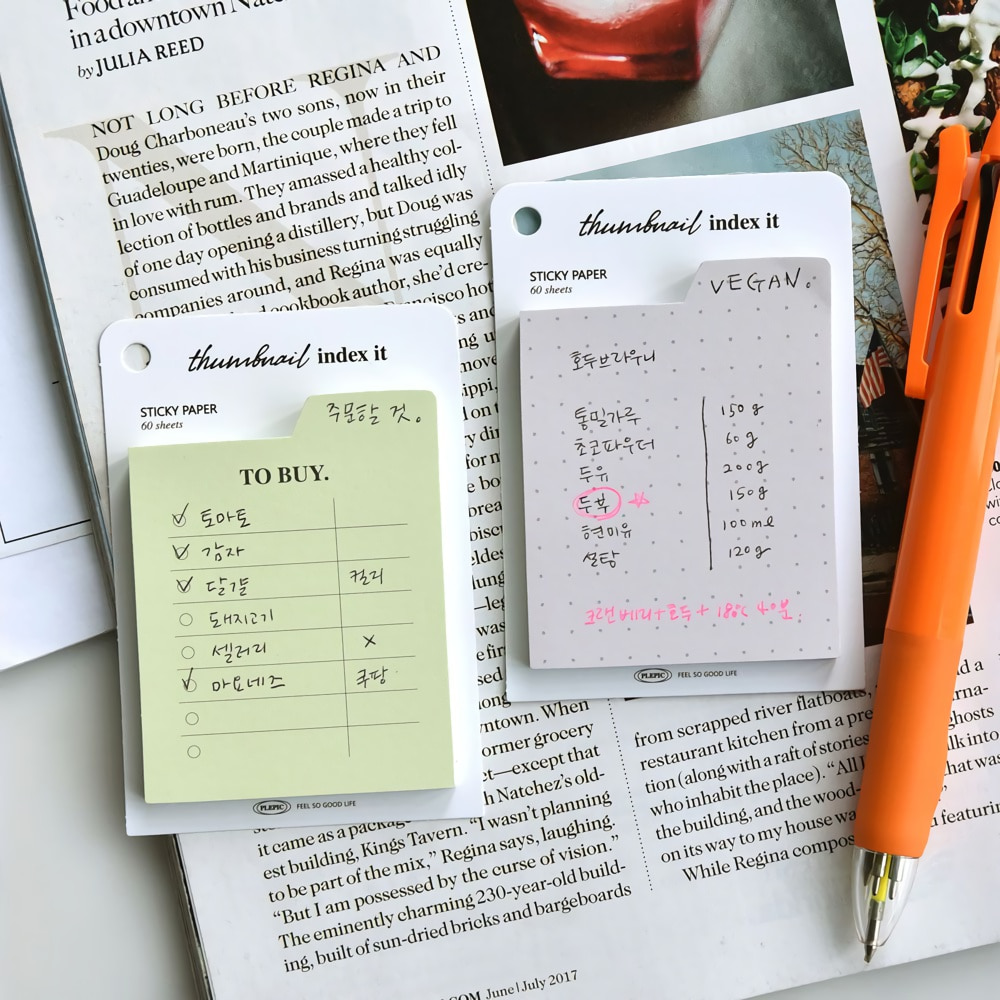 in a downtown
by JULIA REED
NOT LONG BEFORE REGINA AND
Doug Charboneau's two sons, now in their
twenties, were born, the couple made a trip to
Guadeloupe and Martinique, where they fell
in love with rum. They amassed a healthy col-
lection of bottles and brands and talked idly
of one day opening a distillery, but Doug was
consumed with his business turning struggling
companies around, and Regina was equally
cookbook author, she'd cre-
thumbnail index it
STICKY PAPER
60 sheets
주문할 것。
TO BUY.
토마토
감자
달걀 컬리
돼지고기
셀러리 x
마요네즈 쿠팡
PLEPIC FEEL SO GOOD LIFE
thumbnail index it
STICKY PAPER
60 sheets
VEGAN。
호두브라우니
통밀가루 150g
초코파우더 60g
두유 200g
두부 150g
현미유 100ml
설탕 120g
크랜베리+호두+ 180℃ 40분.
PLEPIC FEEL SO GOOD LIFE
ntown. When
ormer grocery
ct—except that
h Natchez's old-
it came as a package
est building, Kings Tavern. "I wasn't planning
to be part of the mix," Regina says, laughing.
"But I am possessed by the curse of vision."
The eminently charming 230-year-old build-
ing, built of sun-dried bricks and bargeboards
from scrapped river flatboats,
restaurant kitchen from a pre
tion (along with a raft of stories
who inhabit the place). "All I
the building, and the wood-
on its way to my house wa
While Regina compos
ghosts
alk into
hat was
featurin
.COM June | July 2017